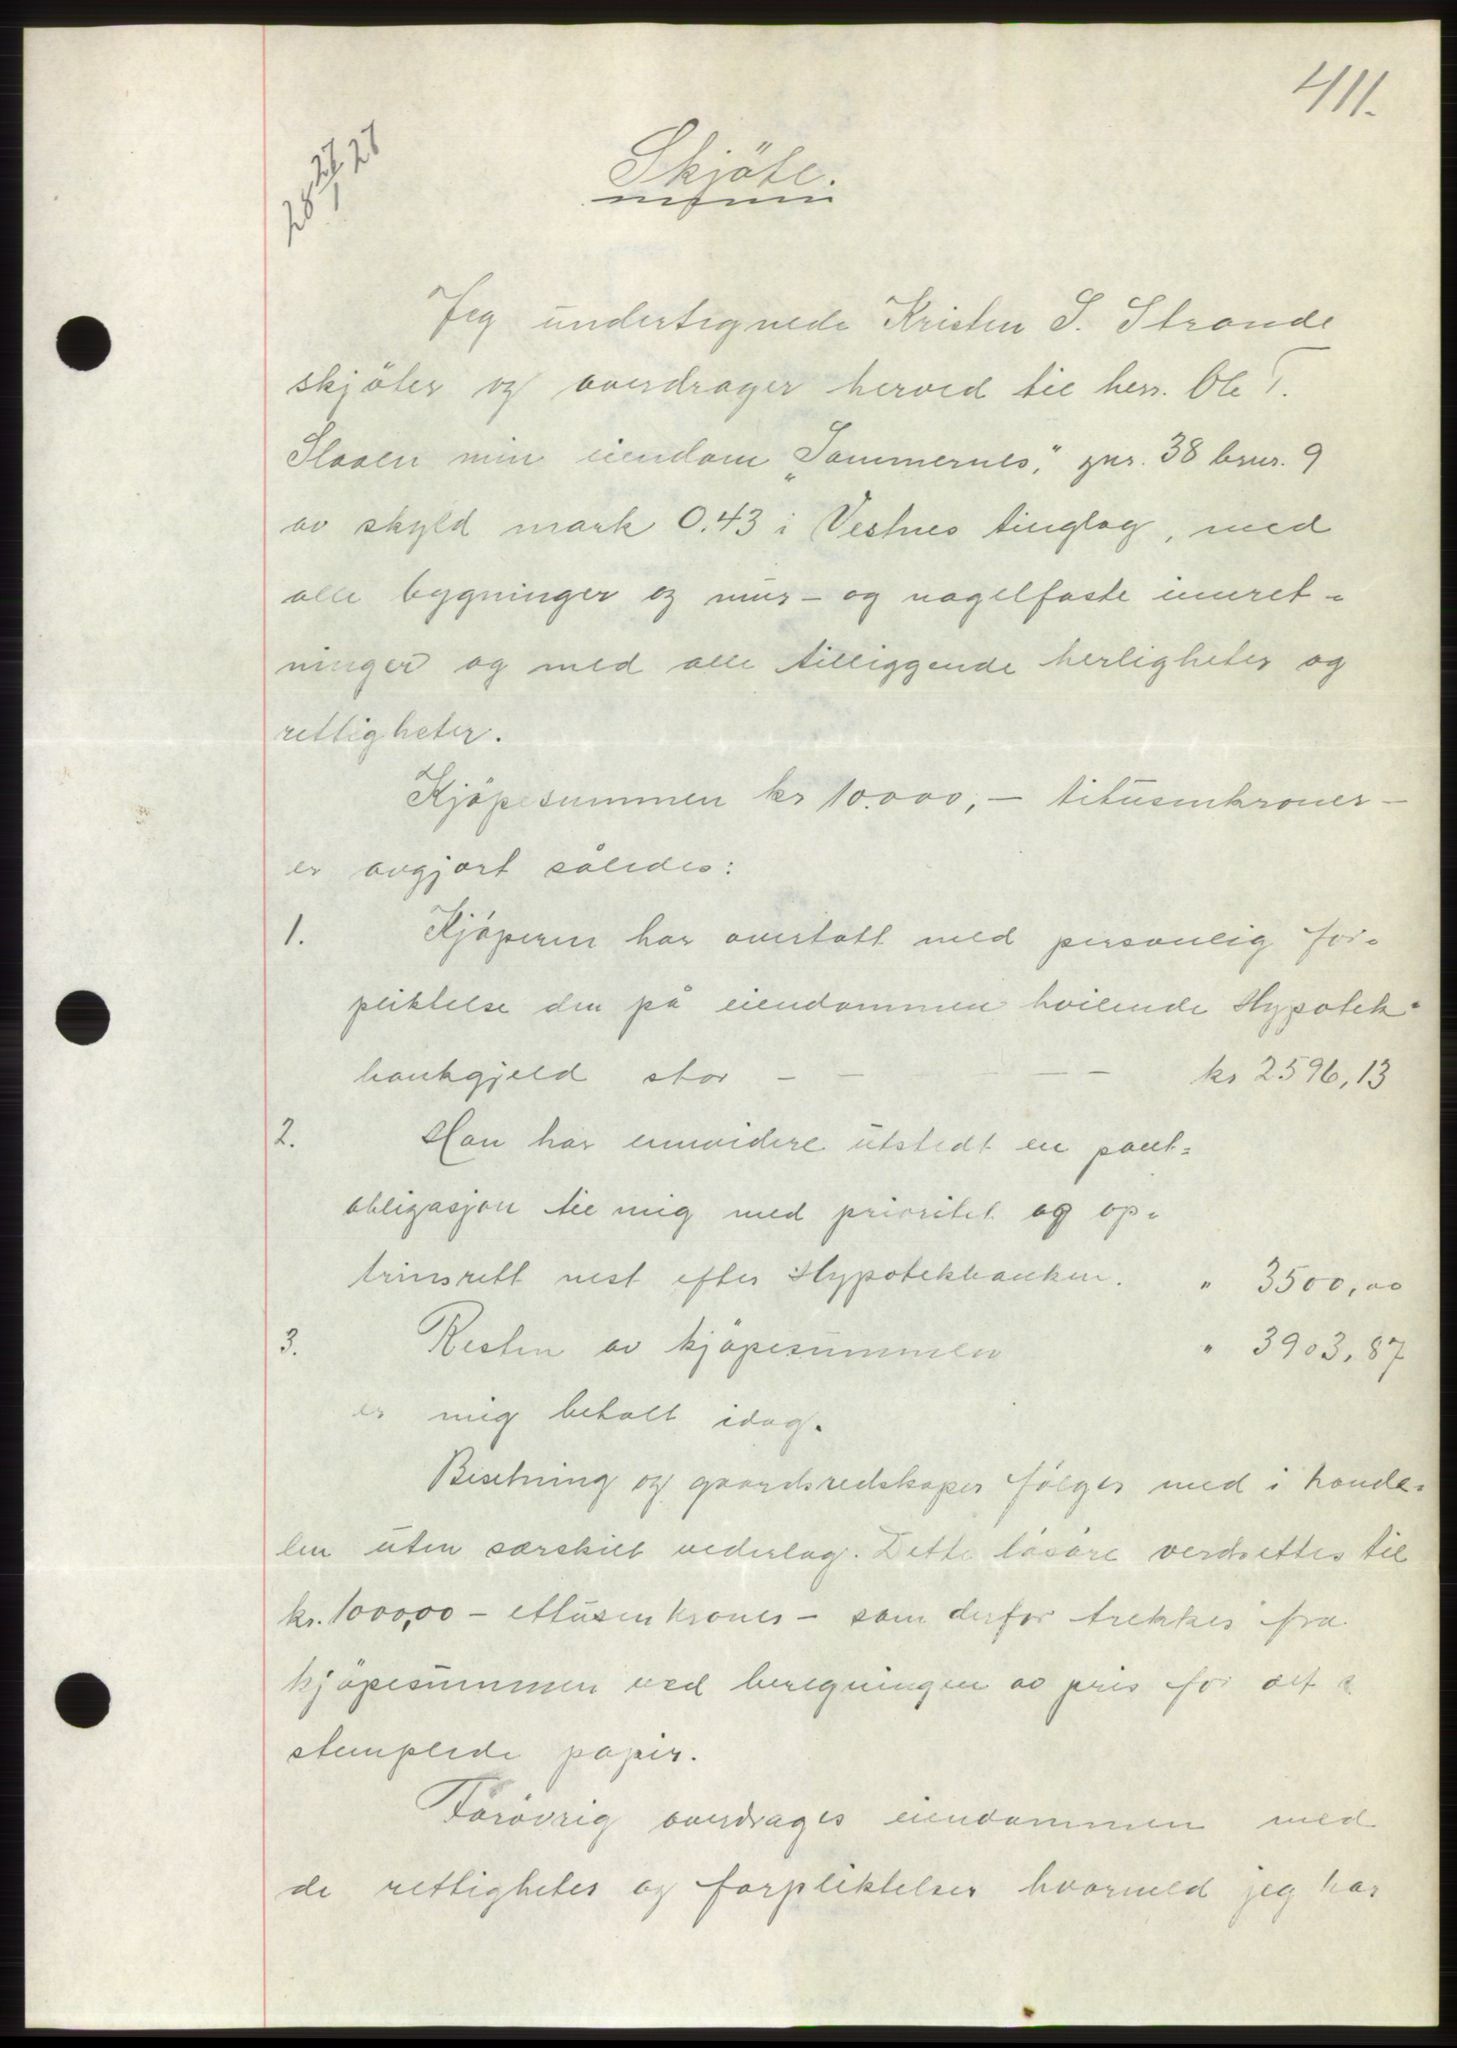 411.
28 27/1 28
Skjöte.
Jeg undertegnede Kristen S. Strande
skjöter og overdrager herved til herr. Ole T.
Slaaen min eiendom „Sommernes“, gnr. 38 brnr. 9
av skyld mark 0.43 i Vestnes tinglag, med
alle bygninger og mur- og nagelfaste innret-
ninger og med alle tilliggende herligheter og
rettigheter.
Kjöpesummen kr 10.000,- titusenkroner-
er avgjort således:
1. Kjöperen har overtatt med personlig for-
pliktelse den på eiendommen hvilende Hypotek-
bankgjeld stor - - - - kr 2596,13
2. Han har ennvidere utstedt en pant-
obligasjon til mig med prioritet og op-
trinsrett nest efter Hypotekbanken. " 3500,00
3. Resten av kjöpesummen " 3903,87
er mig betalt idag.
Besetning og gaardsredskaper fölger med i hande-
len uten særskilt vederlag. Dette lösöre verdsettes til
kr. 1000,00 - ettusenkroner - som derfor trekkes fra
kjöpesummen ved beregningen av pris for det
stemplede papir.
Forövrig overdrages eiendommen med
de rettigheter og forpliktelser hvormed jeg har